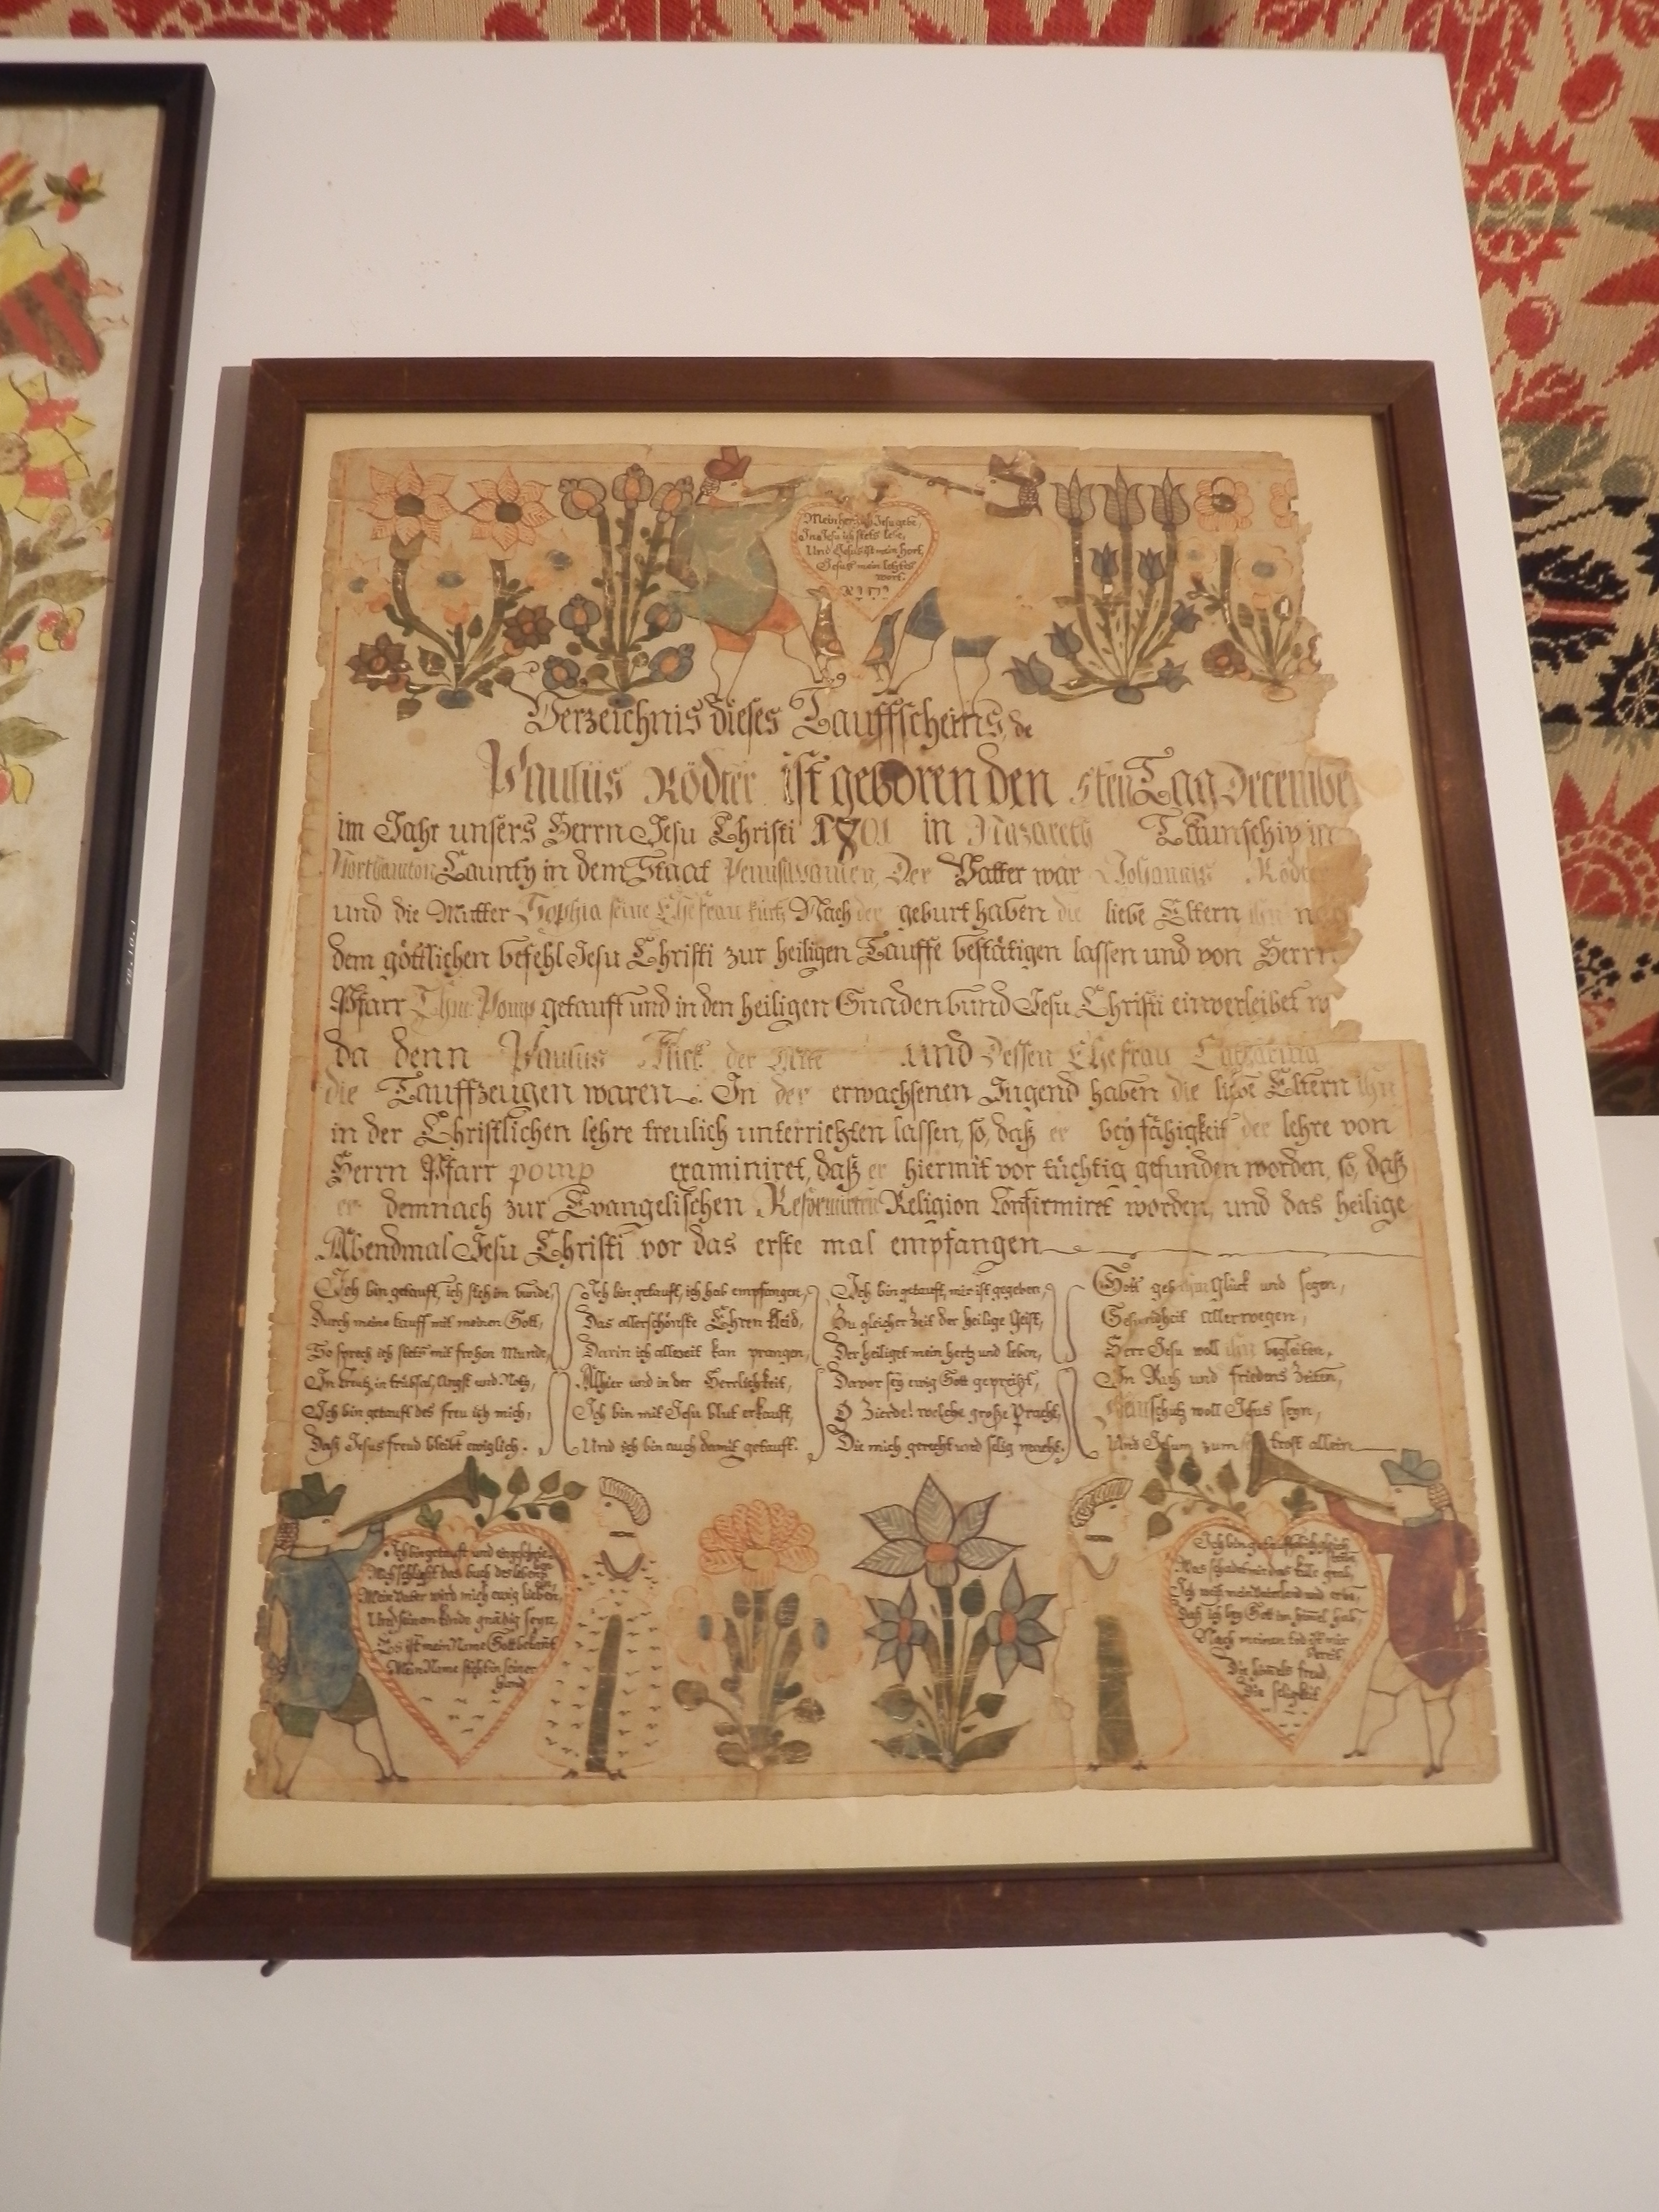 Mein herz
Jesu gebe,
In Jesu ich stets lebe,
Und Jesus ist mein hort,
Jesus mein letztes
wort.
Verzeichnis dieses Tauffscheins, de
Paulus Rödter ist geboren den 5ten Tag December
im Jahr unsers Herrn Jesu Christi 1801 in Nazareth Taunschip in
Northamton Caunty in dem Staat Pennsilvanien, Der Vatter war Johannis Rödter
und die Mutter Sophia seine Ehefrau Nach der geburt haben die liebe Eltern ihn
dem göttlichen befehl Jesu Christi zur heiligen Tauffe bestätigen lassen und von Herrn
Pfarr Pomp getauft und in den heiligen Gnadenbund Jesu Christi einverleibet
da denn Paulus der und Dessen Ehefrau Catharina
die Tauffzeugen waren. In der erwachsenen Jugend haben die liebe Eltern ihn
in der Christlichen lehre treulich unterrichten lassen, so, daß er bey fähigkeit der lehre von
Herrn Pfarr pomp examiniret, daß er hiermit vor tüchtig gefunden worden, so, daß
er demnach zur Evangelischen Reformirten Religion Confirmiret worden, und das heilige
Abendmal Jesu Christi vor das erste mal empfangen
Ich bin getauft, ich steh im bunde,
Durch meine tauff mit meinen Gott,
So sprech ich stets mit frohen Munde,
In Kreutz, in trübsal, Angst und Noth,
Ich bin getauft des freu ich mich,
Daß Jesus freud bleibt ewiglich.
Ich bin getauft, ich hab empfangen,
Das allerschönste Ehren Kleid,
Darin ich allezeit kan prangen,
Alhier und in der Herrlichkeit,
Ich bin mit Jesu blut erkauft,
Und ich bin auch damit getauft.
Ich bin getauft, mir ist gegeben,
Zu gleicher Zeit der heilige Geist,
Der heiliget mein hertz und leben,
Davor sey ewig Gott gepreißt,
O Zierde! welche große Pracht,
Die mich gerecht und selig macht.
Gott geb ihm Glück und segen,
Gesundheit allerwegen,
Herr Jesu woll ihn begleiten,
In Ruh und friedens Zeiten,
schutz woll Jesus seyn,
Und Jesum zum trost allein
Ich bin getauft und eingeschrie-
ben
Mich schließt das buch des lebens
Mein Vater wird mich ewig lieben,
Und seinem kinde gnädig seyn,
Es ist mein Name Gott bekant
Mein Name steht in seiner
Hand
Ich bin getauft
Was schadet mir das kale grab,
Ich weiß mein Vaterland und erbe,
Daß ich bey Gott im himel hab,
Nach meinen tod ist mir
bereit
Die himels freud
Die seligkeit